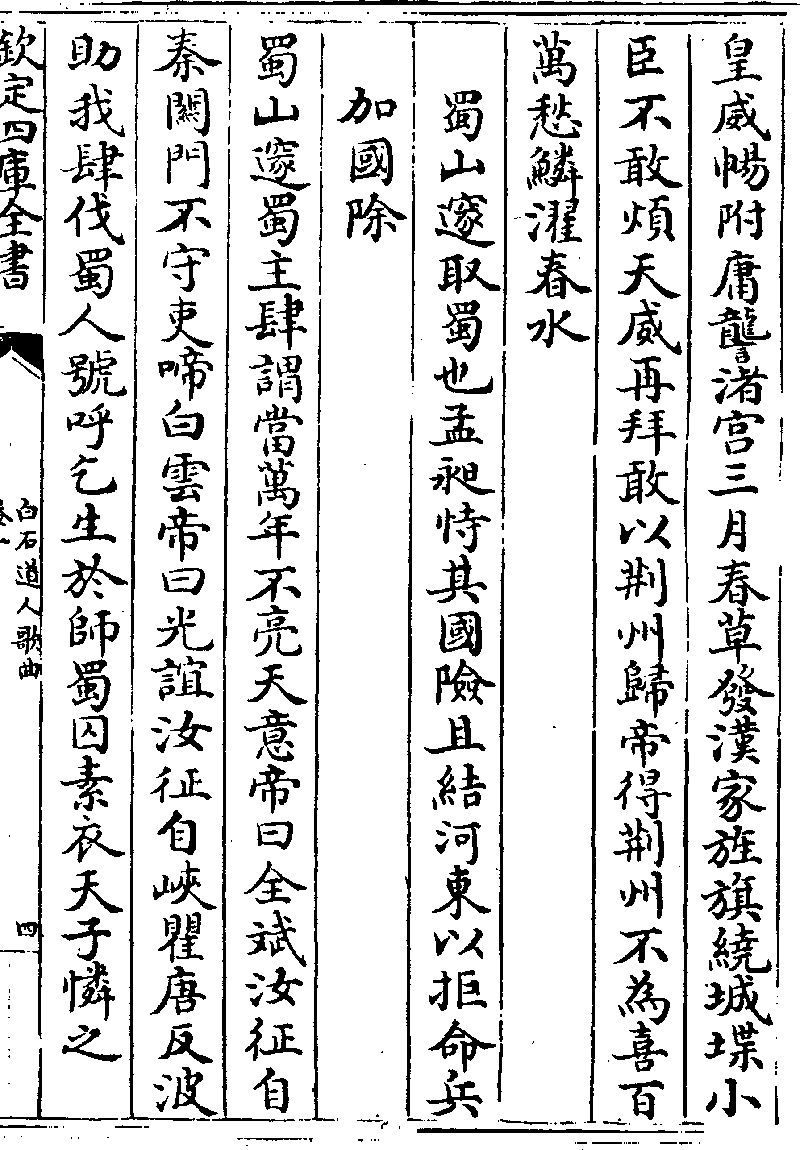 皇威暢附庸讋渚宫三月春草發漢家旌旗繞城堞小
臣不敢煩天威再拜敢以荆州歸帝得荆州不為喜百
萬愁鱗濯春水
蜀山邃取蜀也孟昶恃其國險且結河東以拒命兵
加國除
蜀山邃蜀主肆謂當萬年不亮天意帝曰全斌汝征自
秦闗門不守吏啼白雲帝曰光誼汝征自峽瞿唐反波
助我肆伐蜀人號呼乞生於師蜀囚素衣天子憐之
欽定四庫全書
白石道人歌曲
卷一
四